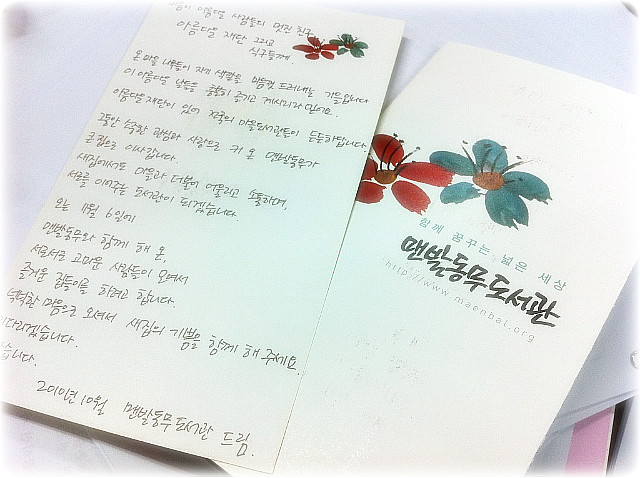 아름다운 사람들의 멋진 친구,
아름다운 재단 그리고
식구들께.
온 마을 나무들이 자기 색깔을 맘껏 드러내는 가을입니다
이 아름다운 날들을 흠뻑 즐기고 계시리라 믿어요.
아름다운재단이 있어 전국의 마을도서관들이 든든하답니다.
그동안 관심과 사랑으로 커 온 맨발동무가
큰 집으로 이사갑니다.
새집에서도 마을과 더불어 어울리고 소통하며,
서로를 이어주는 도서관이 되겠습니다.
오는 11월 6일에
맨발동무와 함께 해 온,
서로서로 고마운 사람들이 모여서
즐거운 집들이를 하려고 합니다.
넉넉한 마음으로 오셔서 새집의 기쁨을 함께 해 주세요.
기다리겠습니다.
습니다.
2010년 10월 맨발동무도서관 드림.
함께 꿈꾸는 넓은 세상
맨발동무도서관
http://www.maenbal.org